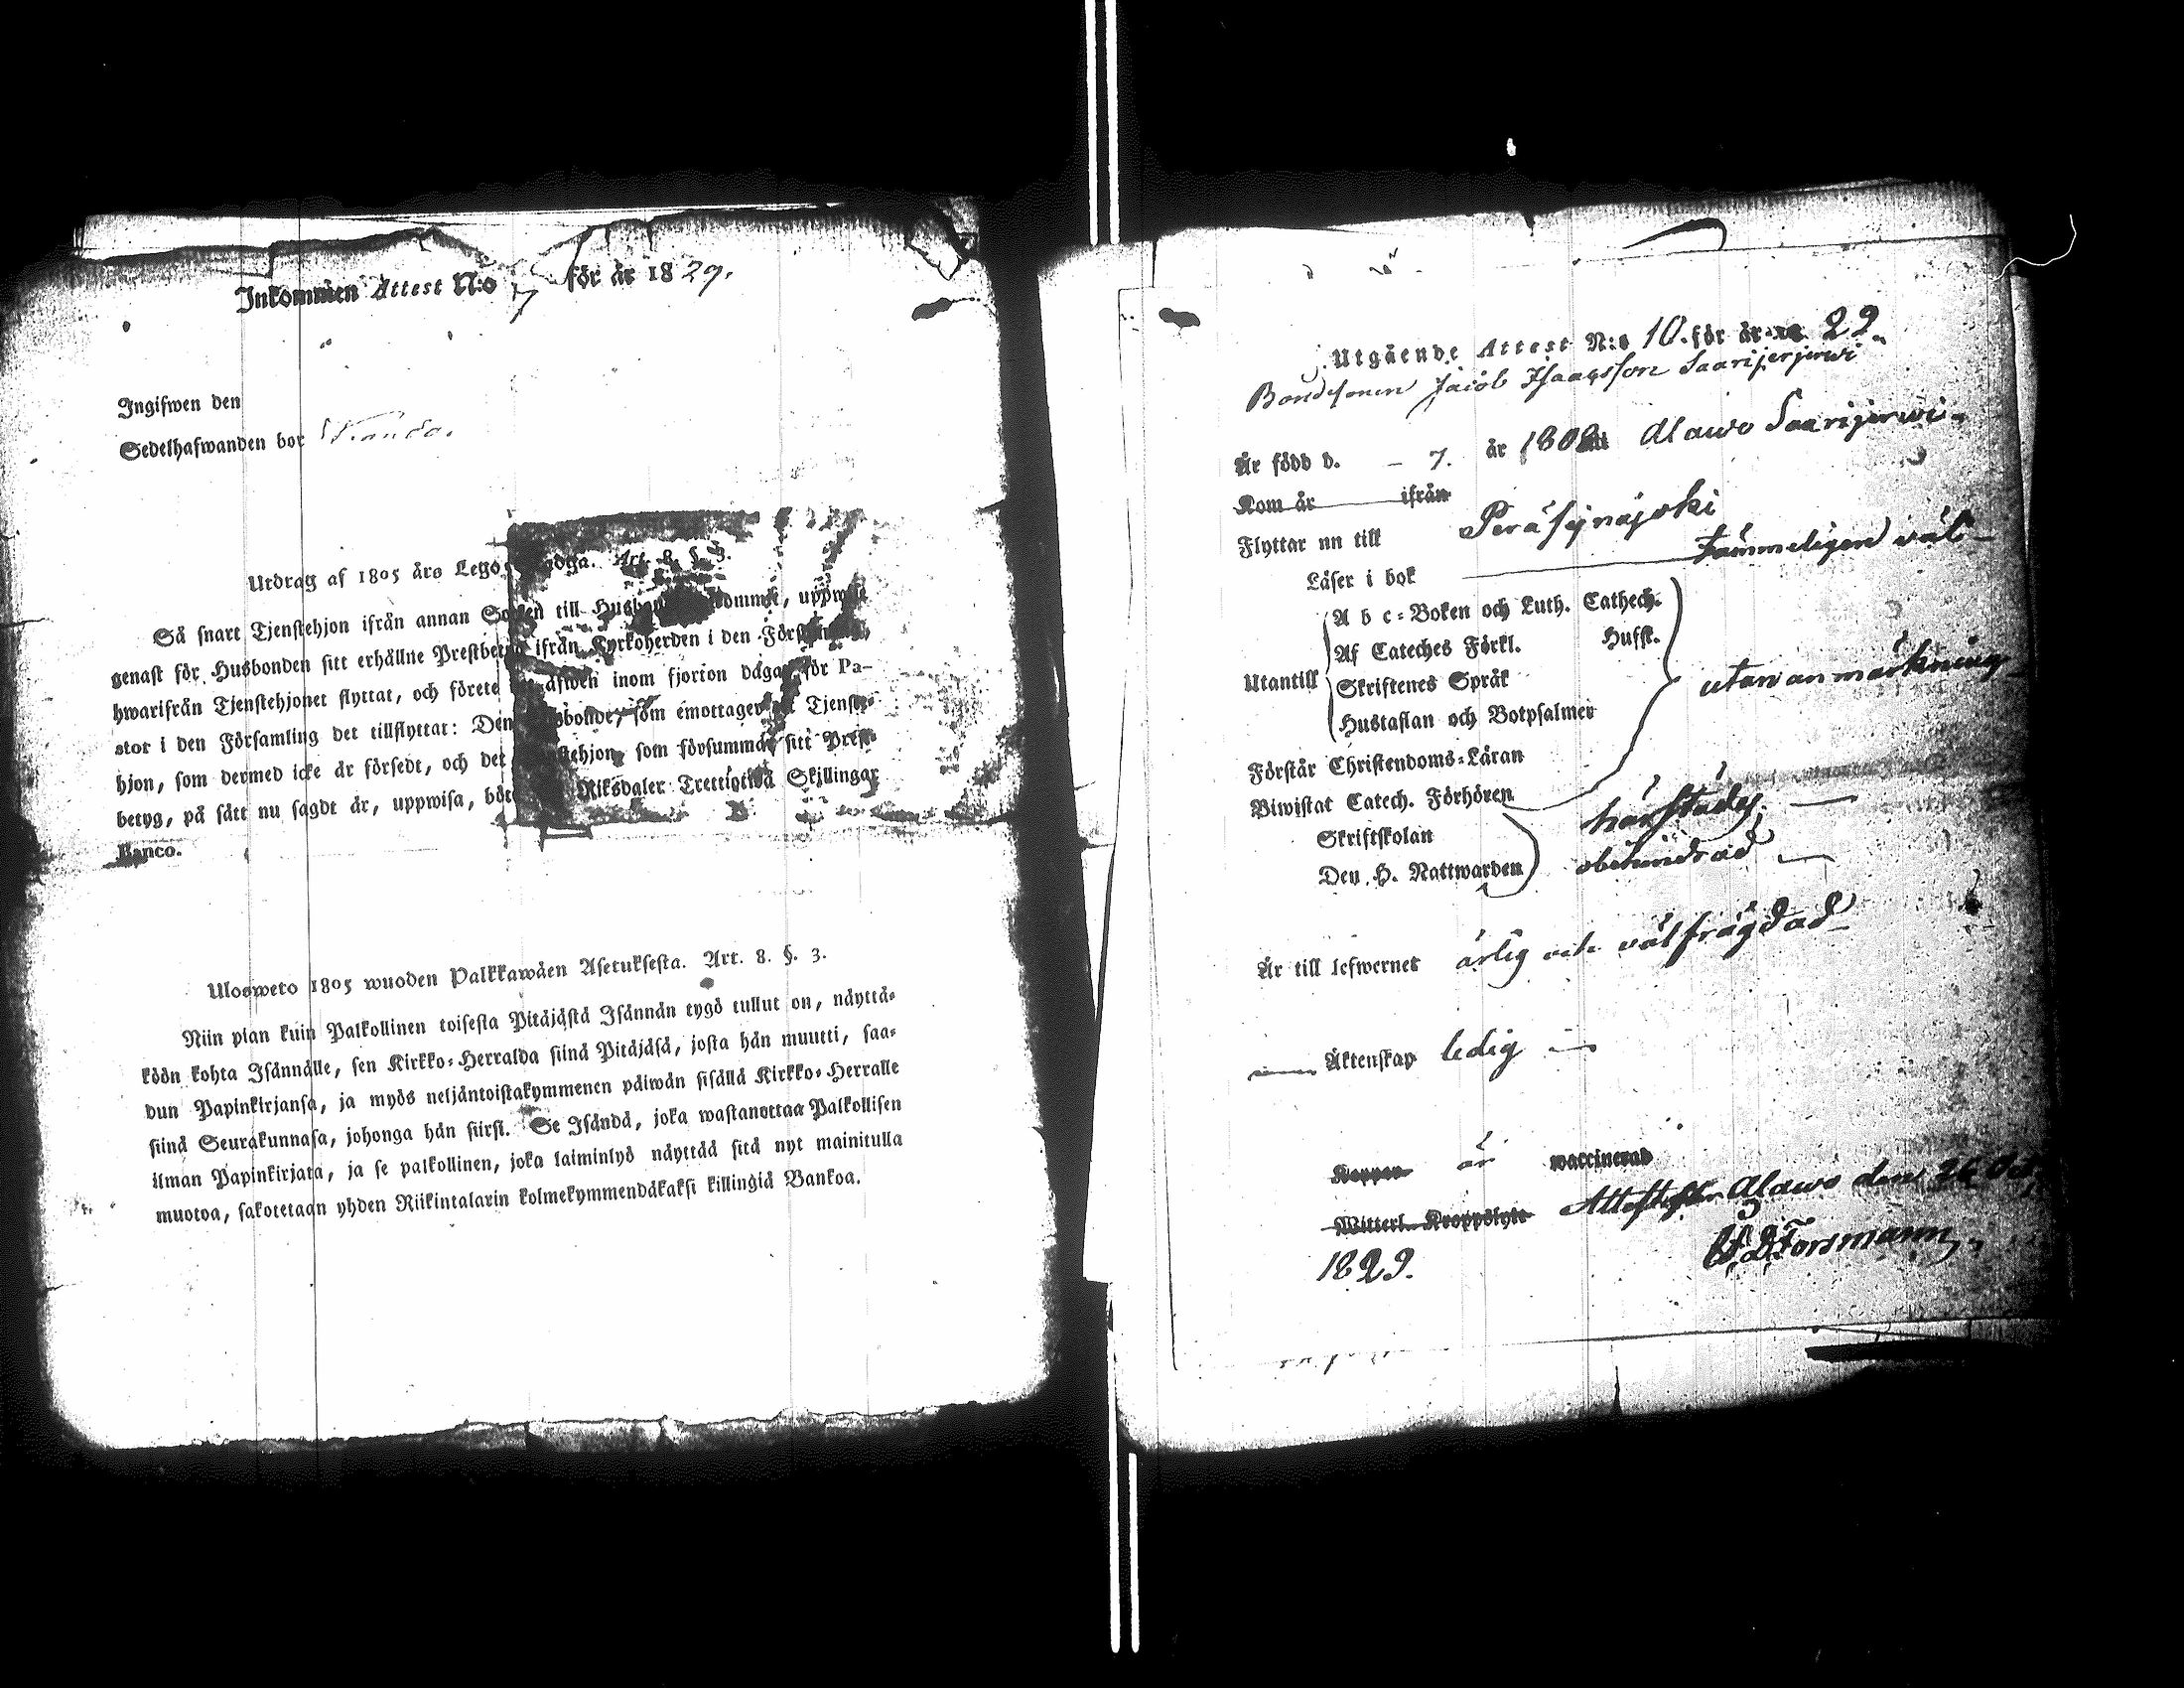 Inkommen Attest N:o 7 för år 1829.
Ingifwen den
Sedelhafwanden bor
Utdrag af 1805 års Lego Art. 8. §. 3.
Så snart Tjenstehjon ifrån annan Socken till Husbonde kommit, uppwise
genast för Husbonden sitt erhållne Prestbetyg ifrån Kyrkoherden i den Församling,
hwarifrån Tjenstehjonet flyttat, och förete inom fjorton dagar för Pa-
stor i den Församling det tillflyttat: Den Husbonde, som emottager ett Tjenste-
hjon, som dermed icke är försedt, och det Tjenstehjon, som försummar sitt Prest-
betyg, på sätt nu sagdt är, uppwisa, böte Riksdaler Trettiotwå Skillingar
Banco.
Ulosweto 1805 wuoden Palkkawäen Asetuksesta. Art. 8. §. 3.
Niin pian kuin Palkollinen toisesta Pitäjästä Isännän tygö tullut on, näyttä-
köön kohta Isännälle, sen Kirkko-Herralda siinä Pitäjäsä, josta hän muutti, saa-
dun Papinkirjansa, ja myös neljäntoistakymmenen päiwän sisällä Kirkko-Herralle
siinä Seurakunnasa, johonga hän siirsi. Se Isändä, joka wastanottaa Palkollisen
ilman Papinkirjata, ja se palkollinen, joka laiminlyö näyttää sitä nyt mainitulla
muotoa, sakotetaan yhden Riikintalarin kolmekymmendäkaksi killingiä Bankoa.
Utgående Attest N:o 10. för år 18 29.
Bondesonen Jacob Isaacsson Saarijerjerwi
Är född d. – 7. år 1808 Alawo Saarijerwi
Kom år ifrån
Flyttar nu till Peräsejnäjoki
Läser i bok tämmeligen väl
A b c-Boken och Luth. Cathech.
Af Cateches Förkl. Husst.
Utantill Skriftenes Språk utan anmärkning
Hustaflan och Botpsalmer
Förstår Christendoms-Läran
Biwistat Catech. Förhören härstädes
Skriftskolan
Den H. Nattwarden obehindrad
Är till lefwernet ärlig och välfrägdad
Äktenskap ledig
Koppor är waccinerad
Witterl. Kroppslyte Attesterar Alawo den 26 Oct.
1829. Forsmann